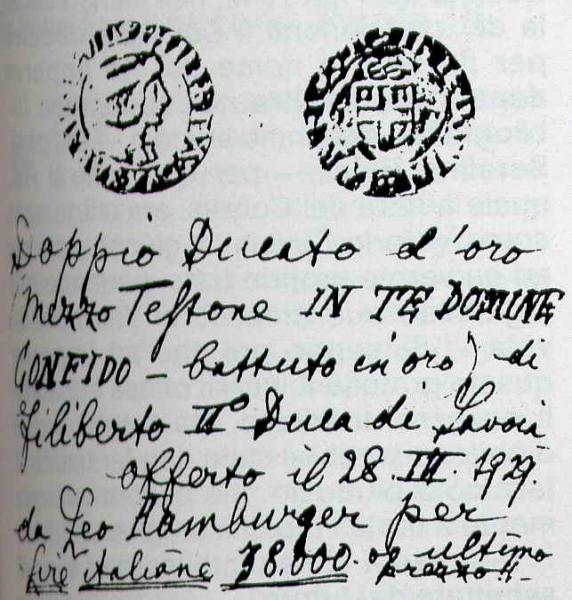 Doppio Ducato d'oro
(mezzo Testone IN TE DOMINE
CONFIDO - battuto in oro) di
Filiberto IIº Duca di Savoia
offerto il 28. III. 1929
da Leo Hamburger per
lire italiane 38.000.oo ultimo
prezzo !!-